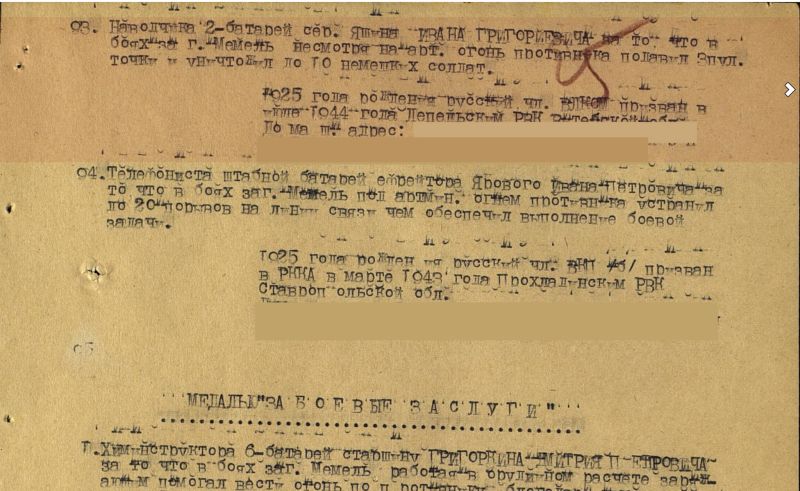 93. Наводчика 2-батареи сер. Яшина ИВАНА ГРИГОРИЕВИЧА за то что в
боях за г. Мемель несмотря на арт. огонь противника подавил 3пул.
точки и уничтожил до 10 немецких солдат.
1925 года рождения русский чл. призван в
1944 года Лепельским РВК Витебской обл.
Дома ш. адрес:
94. Телефониста штабной батареи ефрейтора Ярового Ивана Петровича за
то что в боях за г. Мемель под артмин. огнем противника устранил
до 20 порывов на линии связи чем обеспечил выполнение боевой
задачи.
1925 года рождения русский чл. призван
в РККА в марте 1943 года Прохладинским РВК
Ставропольской обл.
95
МЕДАЛЬЮ "ЗА БОЕВЫЕ ЗАСЛУГИ"
1. Химинструктора 6-батареи старшину ГРИГОРКИНА ДМИТРИЯ ПЕТРОВИЧА
за то что в боях за г. Мемель работая в орудийном расчете
помогал вести огонь по противнику